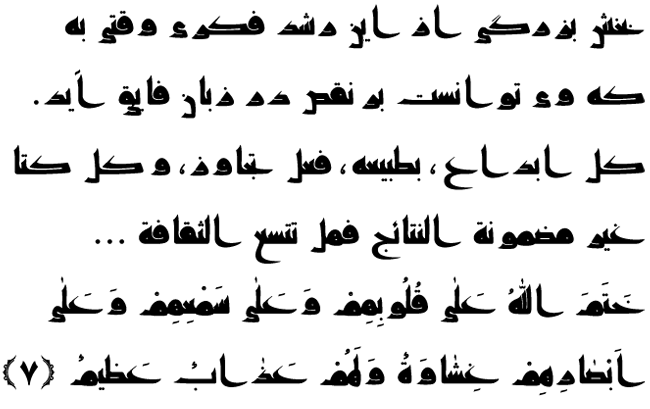 بخش بزرگی از این رشد فکری وقتی به
که وی توانست بر نقص در زبان فایق آید.
كل ابداع، بطبيعته، فعل تجاوز، وكل كتا
غير مضمونة النتائج فهل تتسع الثقافة ...
خَتَمَ اللهُ عَلٰى قُلُوبِهِمْ وَعَلٰى سَمْعِهِمْ وَعَلٰى
اَبْصَارِهِمْ غِشَاوَةٌ وَلَهُمْ عَذَابٌ عَظِيمٌ ﴿٧﴾